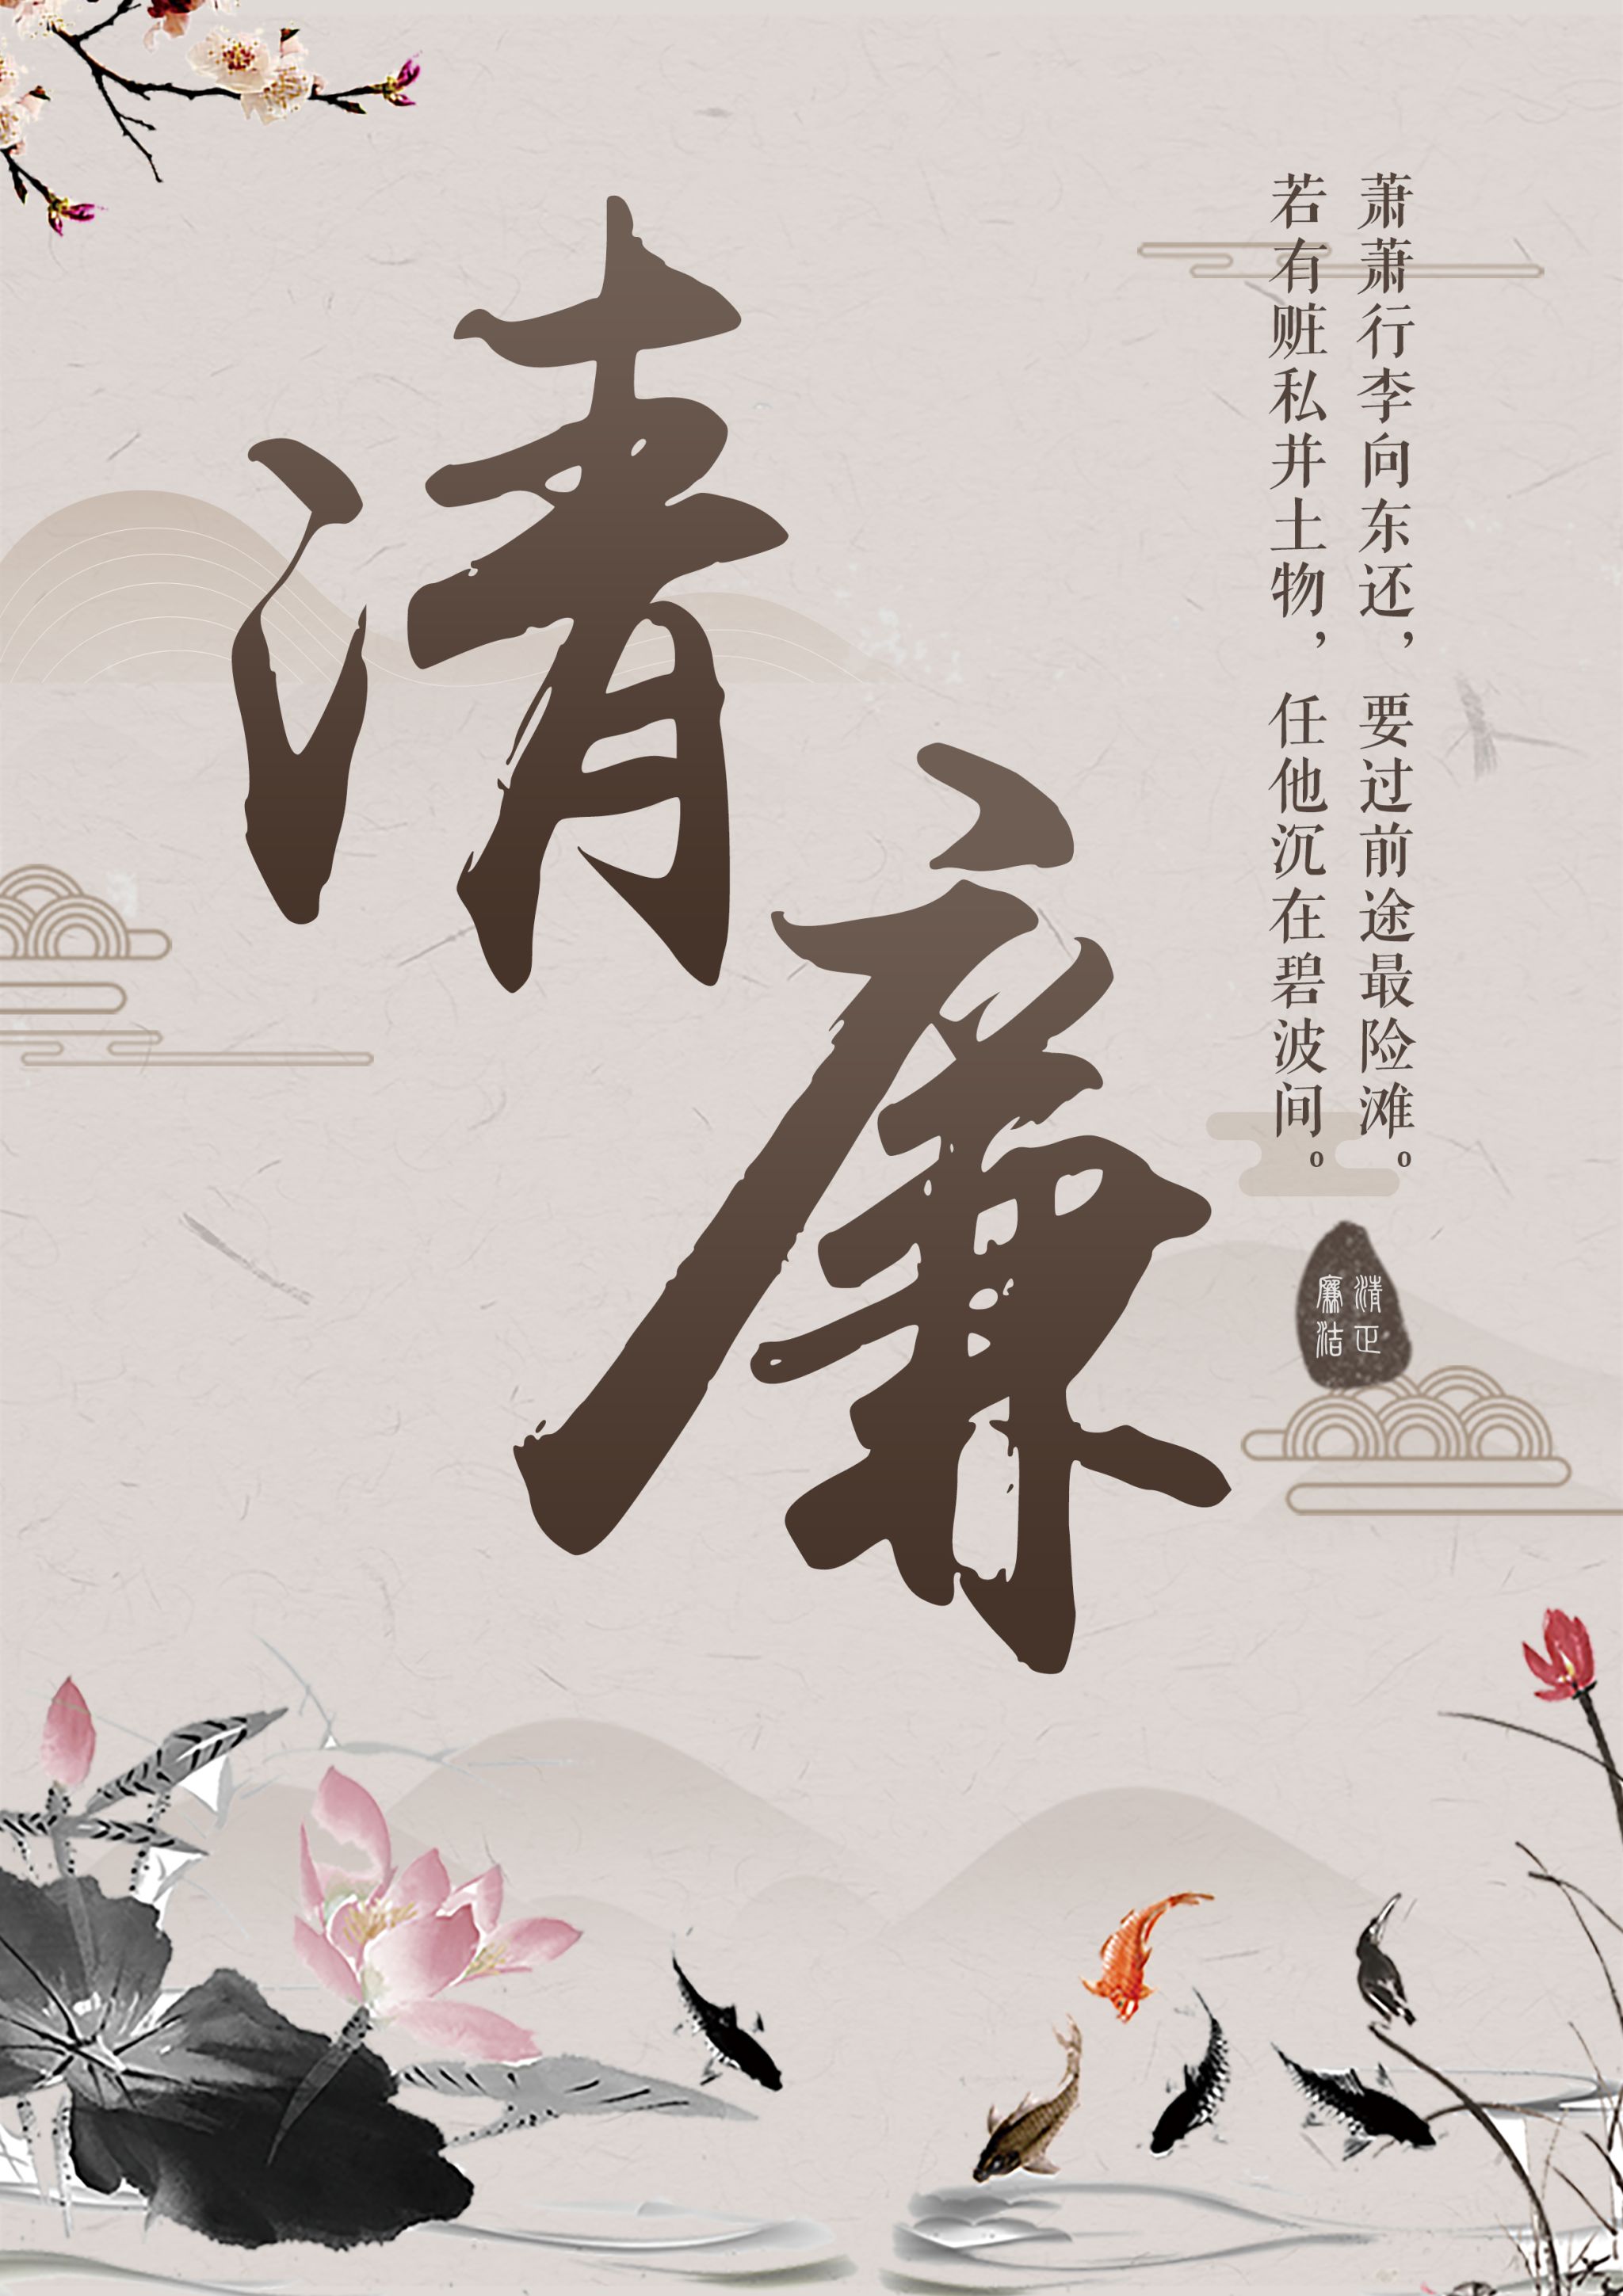 清廉
萧萧行李向东还，要过前途最险滩。
若有赃私井土物，任他沉在碧波间。
清正
廉洁